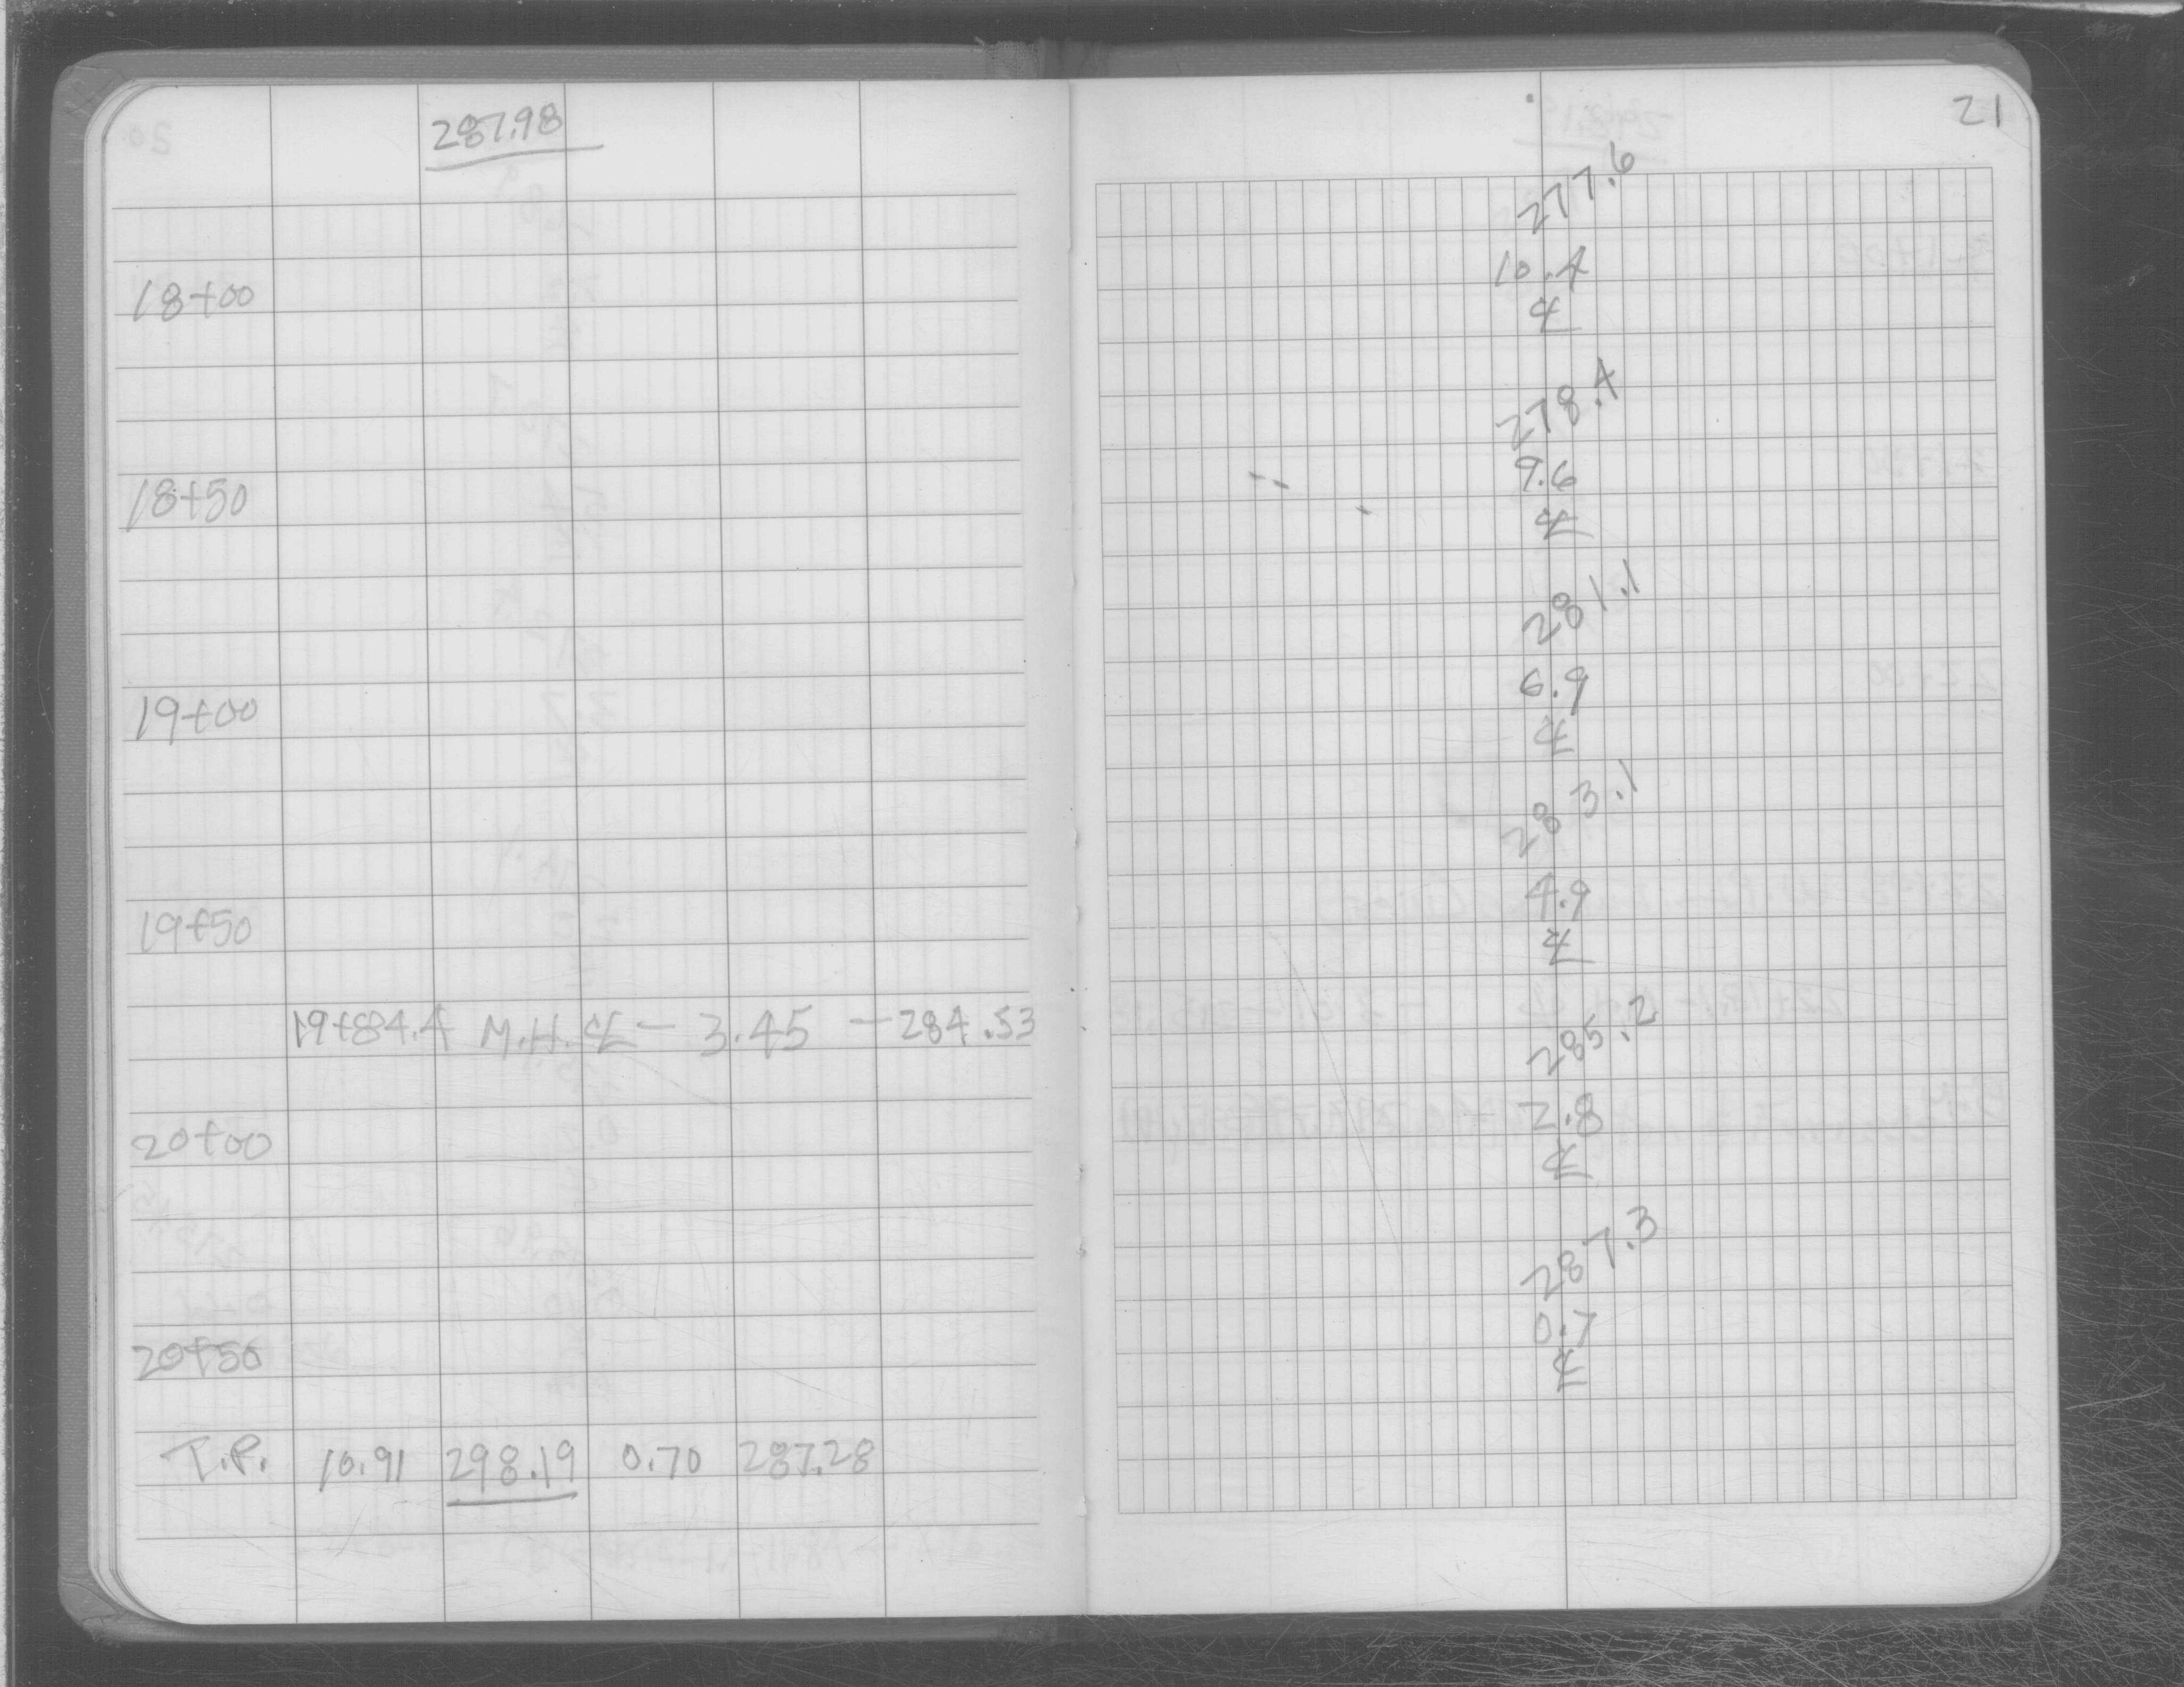 287.98
18+00
18+50
19+00
19+50
19+84.4 M.H. ℄ - 3.45 - 284.53
20+00
20+50
T.P. 10.91 298.19 0.70 287.28
21
277.6
10.4
℄
278.4
9.6
℄
281.1
6.9
℄
283.1
4.9
℄
285.2
2.8
℄
287.3
0.7
℄